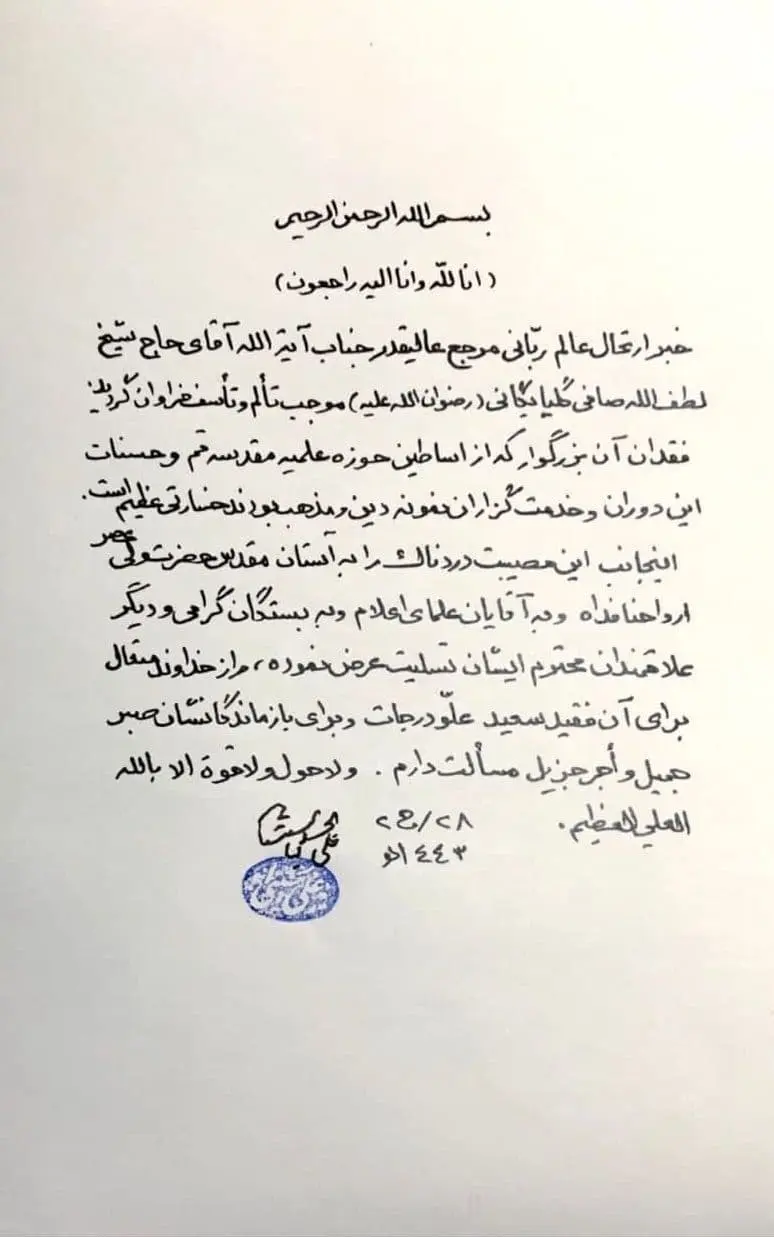 بسم الله الرحمن الرحيم
(انا للّه وانا اليه راجعون)
خبر ارتحال عالم ربّانی مرجع عاليقدر جناب آية الله آقای حاج شيخ
لطف الله صافی گلپايگانی (رضوان الله عليه) موجب تألم وتأسف فراوان گرديد
فقدان آن بزرگوار که از اساطين حوزه علميه مقدسه قم وحسنات
اين دوران وخدمت گزاران نمونه دين ومذهب بودند خسارتی عظيم است.
اينجانب اين مصيبت دردناک را به آستان مقدس حضرت ولی عصر
ارواحنا فداه وبه آقايان علمای اعلام وبه بستگان گرامی وديگر
علاقمندان محترم ايشان تسليت عرض نموده، واز خداوند متعال
برای آن فقيد سعيد علوّ درجات وبرای بازماندگانشان صبر
جميل وأجر جزيل مسألت دارم. ولا حول ولا قوة الا بالله
العلي العظيم. ٢٨/ج٢
١٤٤٣هـ علي